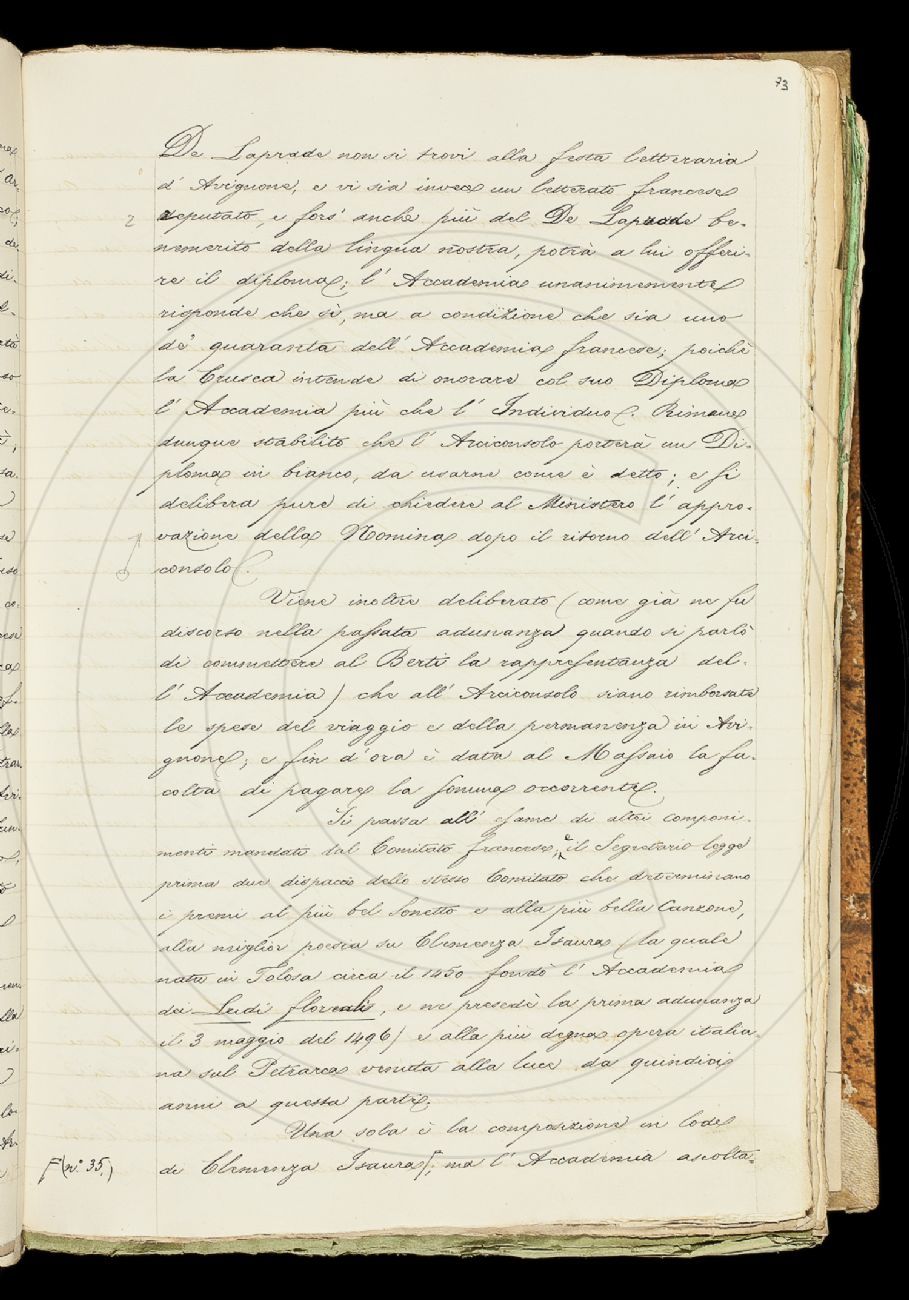 73
De Laprade non si trovi alla festa letteraria
d' Avignone, e vi sia invece un letterato francese
2
deputato, e fors' anche più del De Laprade be-
nemerito della lingua nostra, potrà a lui offeri-
re il diploma; l' Accademia unanimemente
risponde che sì, ma a condizione che sia uno
de' quaranta dell' Accademia francese; poichè
la Crusca intende di onorare col suo Diploma
l' Accademia più che l' Individuo. Rimane
dunque stabilito che l' Arciconsolo porterà un Di-
ploma in bianco, da usarne come è detto; e si
delibera pure di chiedere al Ministero l' appro-
vazione della Nomina dopo il ritorno dell' Arci-
consolo.
Viene inoltre deliberato (come già ne fu
discorso nella passata adunanza quando si parlò
di commettere al Berti la rappresentanza del-
l' Accademia) che all' Arciconsolo siano rimborsate
le spese del viaggio e della permanenza in Avi-
gnone; e fin d' ora è data al Massaio la fa-
coltà di pagare la somma occorrente.
Si passa all' esame di altri componi-
menti mandati dal Comitato francese, e il Segretario legge
prima due dispacci dello stesso Comitato che determinano
i premi al più bel Sonetto e alla più bella Canzone,
alla miglior poesia su Clemenza Isaura (la quale
nata in Tolosa circa il 1450 fondò l' Accademia
dei Ludi floreali, e ne presedè la prima adunanza
il 3 maggio del 1496) e alla più degna opera italia-
na sul Petrarca venuta alla luce da quindici
anni a questa parte.
Una sola è la composizione in lode
di Clemenza Isaura; ma l' Accademia ascolta-
(n° 35.)